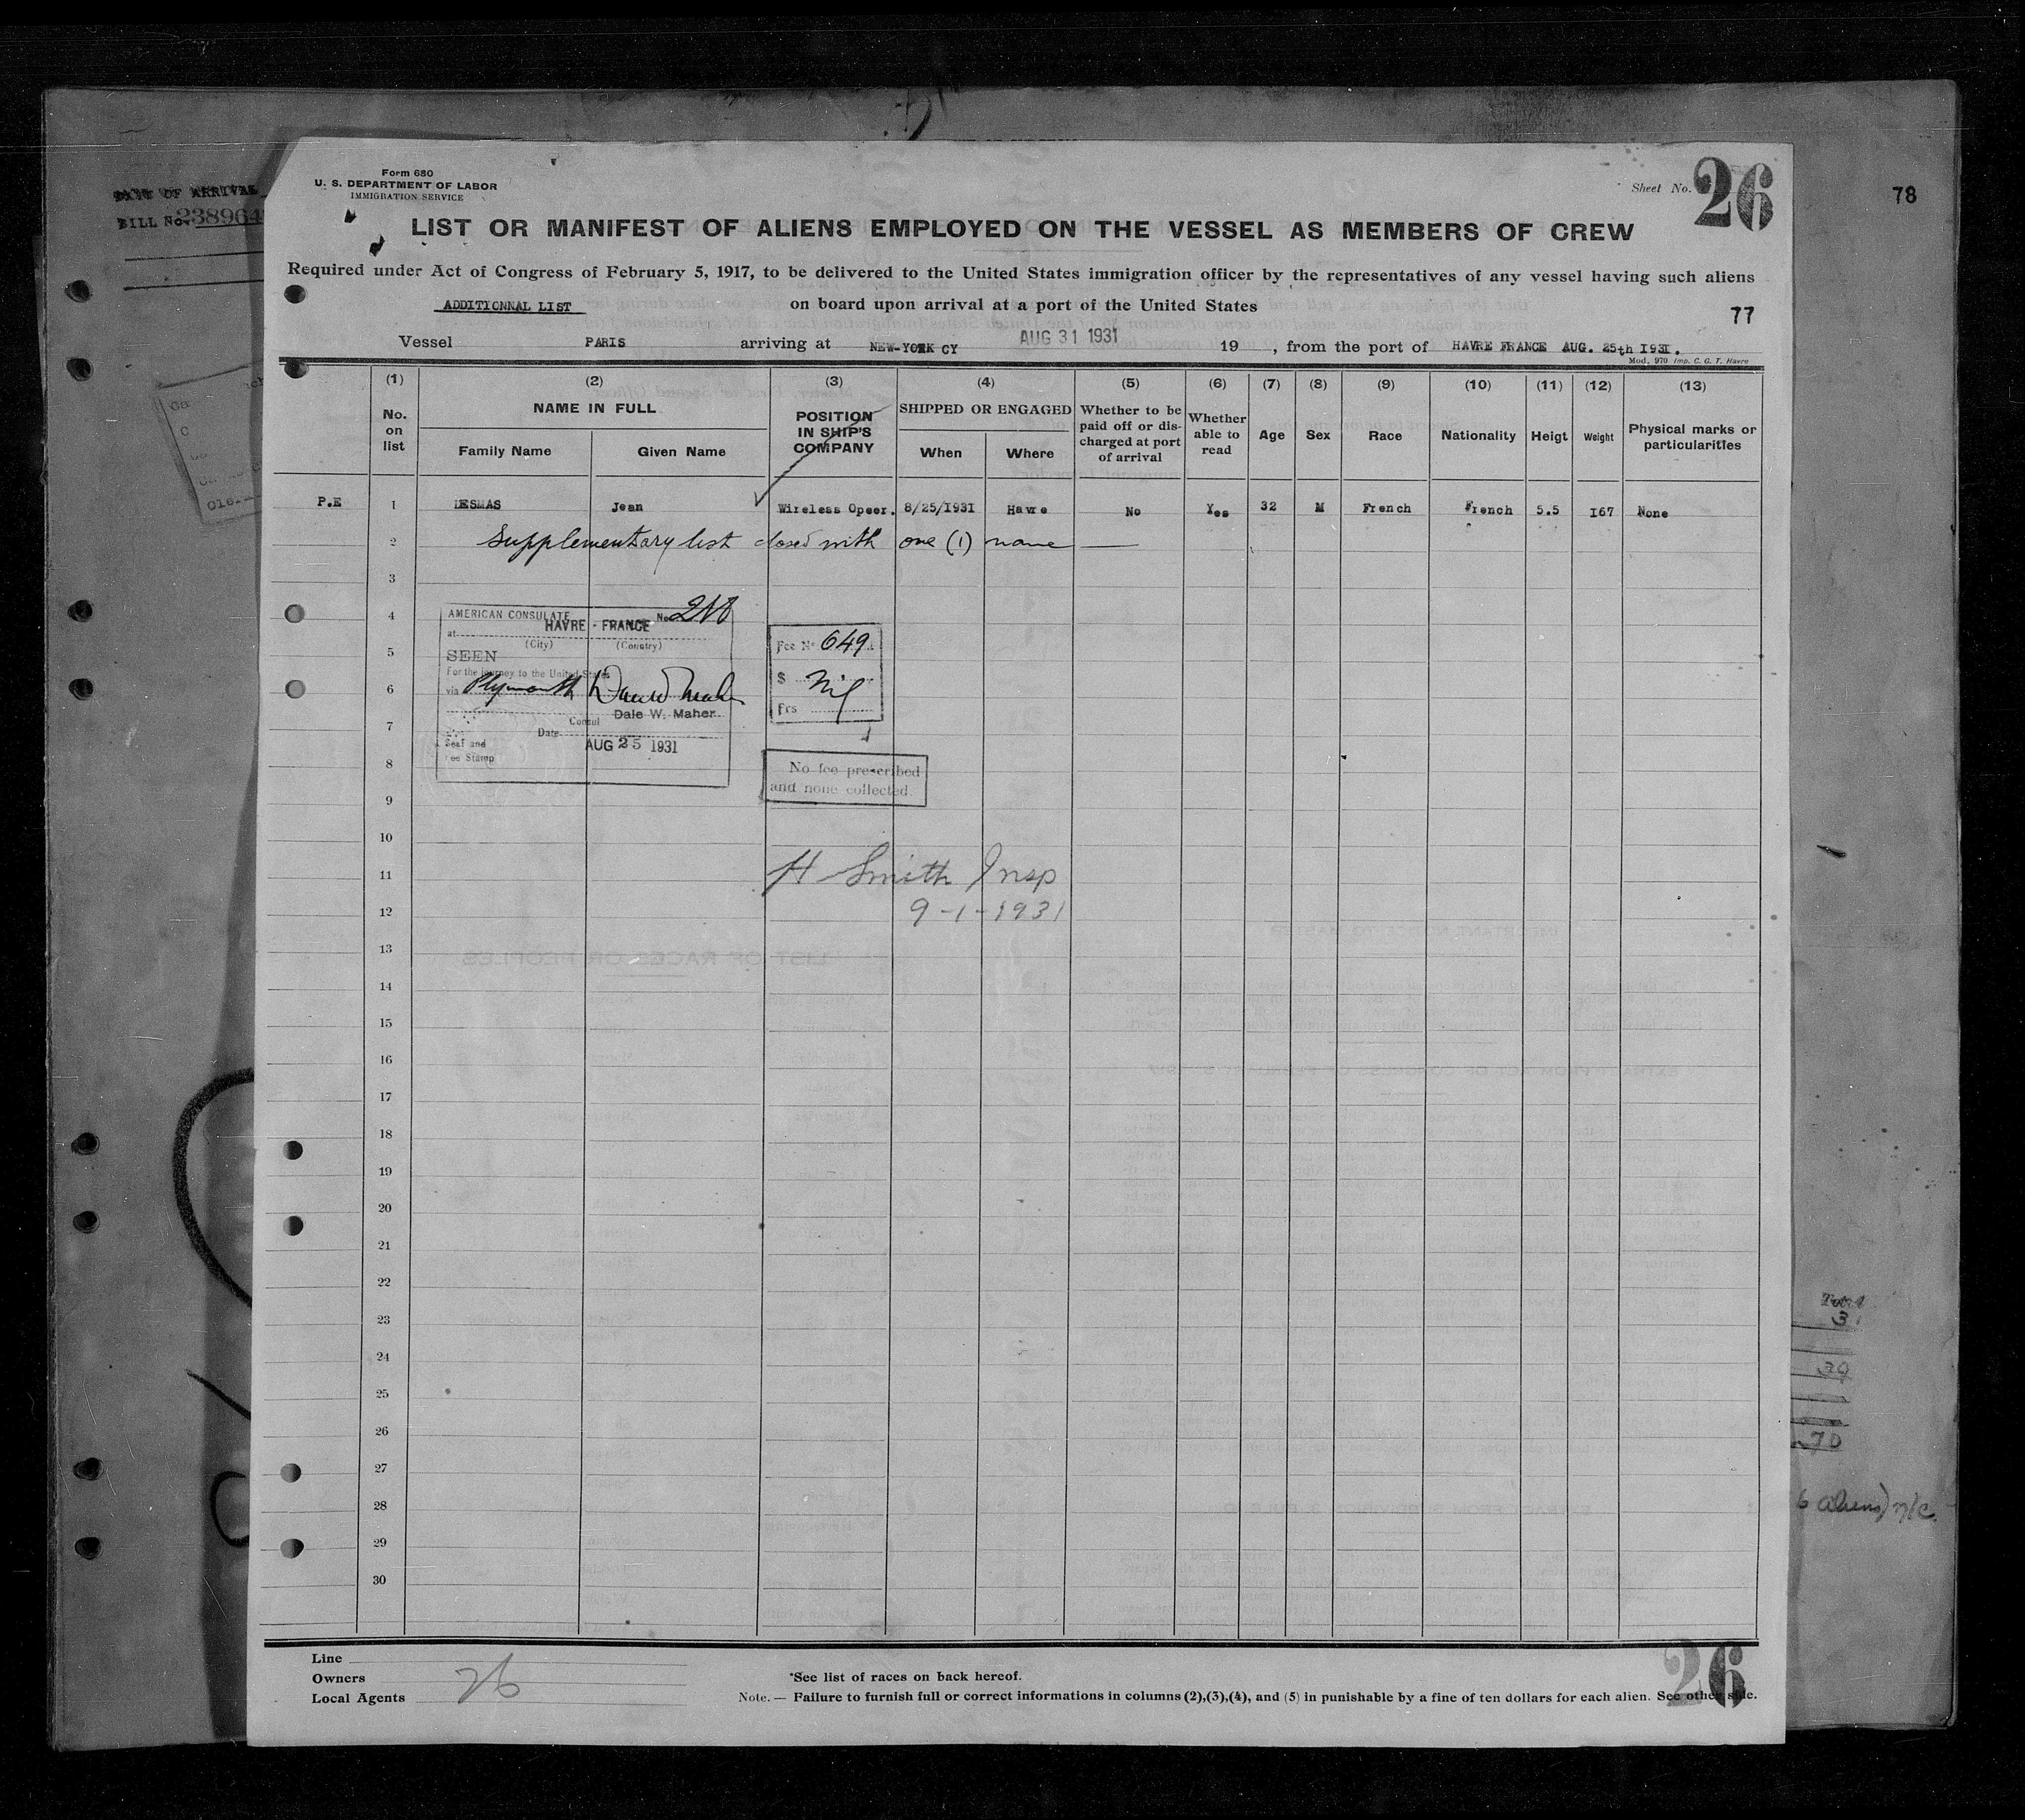 Form 680
U. S. DEPARTMENT OF LABOR
IMMIGRATION SERVICE
Sheet No. 26
78
BILL No.
LIST OR MANIFEST OF ALIENS EMPLOYED ON THE VESSEL AS MEMBERS OF CREW
Required under Act of Congress of February 5, 1917, to be delivered to the United States immigration officer by the representatives of any vessel having such aliens
ADDITIONNAL LIST on board upon arrival at a port of the United States
77
Vessel PARIS arriving at NEW-YORK CY AUG 31 1931 19 , from the port of HAVRE FRANCE AUG. 25th 1931.
Mod. 970 Imp. C. G. T. Havre
(1) (2) (3) (4) (5) (6) (7) (8) (9) (10) (11) (12) (13)
No. on list NAME IN FULL Family Name Given Name POSITION IN SHIP'S COMPANY SHIPPED OR ENGAGED When Where Whether to be paid off or discharged at port of arrival Whether able to read Age Sex Race Nationality Heigt Weight Physical marks or particularities
P.E 1 Jean Wireless Opeer. 8/25/1931 Havre No Yes 32 M French French 5.5 167 None
2 Supplementary list closed with one (1) name
3
4
AMERICAN CONSULATE No
at HAVRE - FRANCE
(City) (Country)
5
SEEN
For the journey to the United States
6
via Plymouth
Dale W. Maher
7
Consul
Date AUG 25 1931
Seal and
Fee Stamp
Fee No 649
$ Nil
Frs
8
No fee prescribed
and none collected.
9
10
11
H Smith Insp
12
9-1-1931
13
14
15
16
17
18
19
20
21
22
23
24
25
26
27
28
29
30
Total
70
aliens)
Line
Owners
Local Agents
26
*See list of races on back hereof.
Note. — Failure to furnish full or correct informations in columns (2),(3),(4), and (5) in punishable by a fine of ten dollars for each alien. See other side.
26